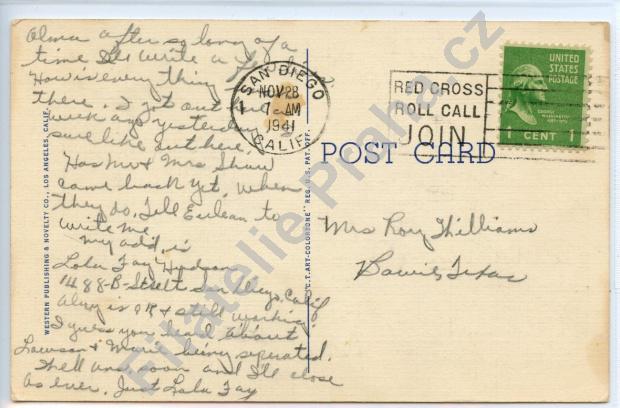 Alma after so long of a
time I'll write a
How is every thing
there. I got out here
week ago yesterday
sure like out here.
Has Mr & Mrs Shaw
came back yet. When
they do, Tell Eulean to
write me
my add. is
Lola Fay Hudson
1488-B-Street San Diego, Calif
is OK & still working.
I guess you heard about
Lawson & Marie being seperated.
Well ans soon and I'll close
as ever. Just Lola Fay
WESTERN PUBLISHING & NOVELTY CO., LOS ANGELES, CALIF.
C.T. ART-COLORTONE" REG. U.S. PAT. OFF.
SAN DIEGO
NOV 28
7-AM
1941
CALIF
RED CROSS
ROLL CALL
JOIN
UNITED
STATES
POSTAGE
GEORGE
WASHINGTON
1 CENT 1
POST CARD
Mrs Roy Williams
Texas
Filatelie-Praha.cz